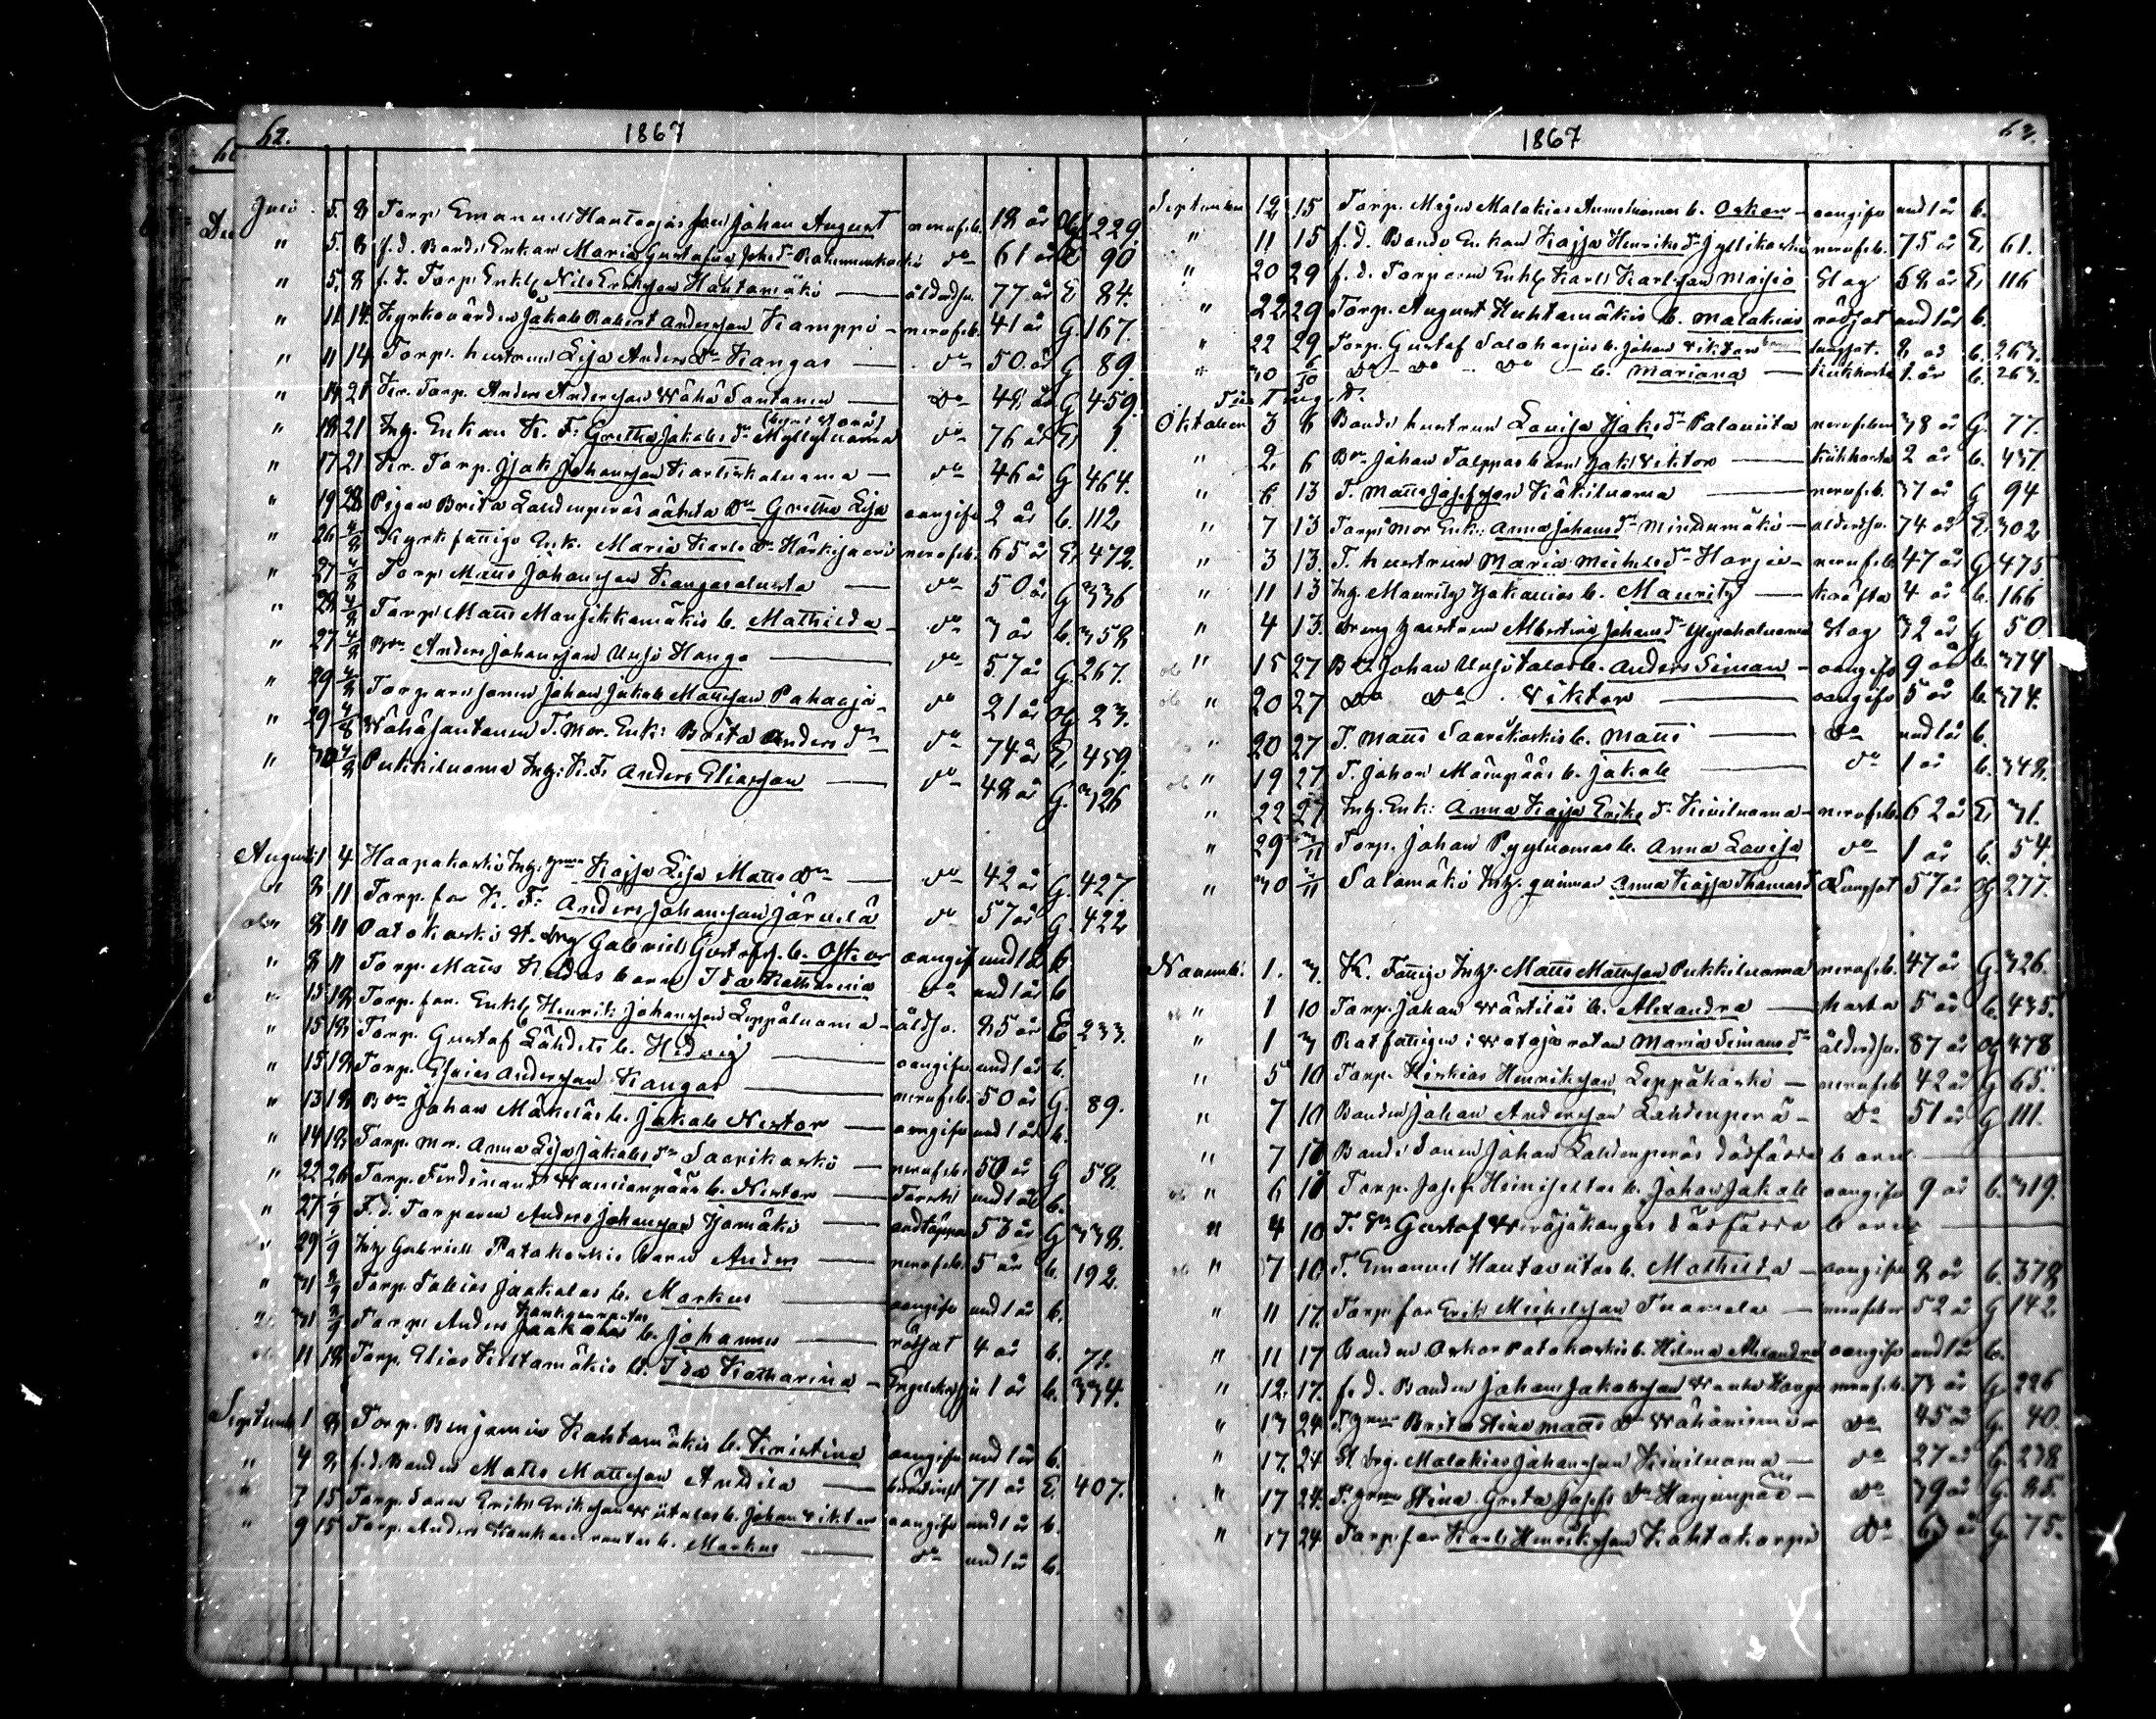 62. 1867
Juli 5. 8 Torp. Emanuel Hautaojas son Johan August nervfeb. 18 år Og 229.
" 5. 8 f.d. Bond. Enkan Maria Gustafva Johs dr do 61 år E 90
" 5. 8 f.d. Torp. Enkl. Nils Ericsson Hautamäki ålderdsv. 77 år E 84.
" 11 14. Kyrkovärden Jakob Robert Andersson Kamppi nervfeb. 41 år G. 167.
" 11 14 Torp. hustrun Lisa Anders dr Kangas do 50 år G 89.
" 14 21 Kr. Torp. Anders Andersson Wähä Santanen do 48 år G 459.
" 18 21 Inh. Enkan K. F. Gretha Jakobs dr Myllyluoma do 76 år E 1.
" 17 21 Kr. Torp. Isak Johansson do 46 år G 464.
" 19 28 Pigan Brita Lahdenperäs oäkta dr Gretha Lisa aangifv. 2 år b. 112
" 26 4/8 Kyrkfattige Enk. Maria Karls dr Härkijoari nervfeb. 65 år E 472.
" 27 4/8 Torp. Matts Johansson Kangasalusta do 50 år G 336
" 28 4/8 Torp. Matts Mansikkamäkis b. Mathilda do 3 år b. 358
" 27 4/8 Bdn Anders Johansson Unsi Hanga do 57 år G. 267.
" 29 4/8 Torparesonen Johan Jakob Mattsson Pahaoja do 21 år og 23.
" 29 4/8 Wähäsantanen T. Mor. Enk: Brita Anders dr do 74 år E 459.
" 30 4/8 Pukkiluoma Inh. K.F. Anders Eliasson do 48 år G. 326
Augusti 1 4 Haapakoski Inh. Kajsa Lisa Matts dr do 42 år G. 427.
" 8 11 Torp. far K. F. Anders Johansson Järvelä do 57 år G. 422
" 8 11 Patokoski St. drg Gabriel Gustafss. b. Oskar aangifv. und 1 år b
" 8 11 Torp. Matts barn Ida Katharina do und 1 år b
" 15 18 Torp. far. Enkl. Henrik Johansson Leppäluoma åldsv. 85 år E 233.
" 15 18 Torp. Gustaf Lähdets b. Hedvig aangifv. und 1 år b.
" 15 18 Torp. Esaias Andersson Kangas nervfeb. 50 år G. 89.
" 13 18 Bdn Johan Mäkeläs b. Jakob Nestor aangifv. und 1 år b.
" 14 18 Torp. mor. Anna Lisa Jakobs dr Saarikoski nervfeb. 50 år G 58.
" 22 26 Torp. Ferdinand b. Nestor Torsk und 1 år b.
" 27 1/9 F.d. Torparen Anders Johansson Isomäki andtäppa 53 år G 338.
" 29 1/9 Inh. Gabriel Patokoskis barn Anders nervfeb. 5 år b. 192.
" 31 8/9 Torp. Tobias Jaakolas b. Markus aangifv. und 1 år b.
" 31 8/9 Torp. Anders b. Johannes rödsot 4 år b. 71.
11 18 Torp. Elias b. Ida Katharina 1 år b. 334.
September 1 8 Torp. Benjamin Kahtamäkis b. Kristina aangifv. und 1 år b.
" 4 8 f.d. Bonden Matts Mattsson Anttila 71 år E. 407.
" 7 15 Torp. sonen Erik Eriksson b. Johan Viktor aangifv. und 1 år b.
" 9 15 Torp. Anders b. Markus do und 1 år b.
1867 63.
September 12 15 Torp. b. Oskar aangifv. und 1 år b.
" 11 15 f.d. Bonde Enkan Kajsa Henriks dr Jyllikoski nervfeb. 75 år E 61.
" 20 29 f.d. Torparen Enkl. Karl Karlsson Maisio Slag 68 år E 116
" 22 29 Torp. August Huhtamäkis b. Malakias rödsot und 1 år b.
" 22 29 Torp. Gustaf Saloharjus b. Johan Viktor lungsot. 8 år b. 263.
" 30 6/10 do do do b. Mariana kikhosta 1 år b. 263.
Oktober 3 6 Bonde hustrun Lovisa Isaks dr Paloviita nervfeber 38 år G. 77.
" 2 6 Bdn Johan barn Isak Viktor kikhosta 2 år b. 437.
" 6 13 T. Matts Josefsson Käkiluoma nervfeb. 37 år G 94
" 7 13 Torps Mor Enk: Anna Johans dr Mindumäki ålderdsv. 74 år E 302
" 3 13. T. hustrun Maria Michels dr Harju nervfeb. 47 år G 475
" 11 13 Inh. Mauritz Isakssons b. Mauritz kräfta 4 år b. 166
" 4 13. Dreng hustrun Albertina Johans dr Slag 32 år G 50
" 15 27 Bdn Johan Unsitalos b. Anders Simon aangifv. 9 år b. 374
" 20 27 do do Viktor aangifv. 5 år b. 374.
" 20 27 T. Matts Saarikoskis b. Matts do und 1 år b.
" 19 27 T. Johan Mäenpääs b. Jakob do 1 år b. 348.
" 22 27 Inh. Enk: Anna Kajsa Eriks dr Kiviluoma nervfeb. 62 år E 31.
" 29 3/11 Torp. Johan Pyyluomas b. Anna Lovisa do 1 år b. 54.
" 30 3/11 Salomäki Inh. qvinnan Anna Kajsa Thomas dr Lungsot 57 år Og 277.
November 1. 3. K. Fattige Inh. Matts Mattsson Pukkiluoma nervfeb. 47 år G. 326.
" 1 10 Torp. Johan Wärtiläs b. Alexandra Hosta 5 år b. 435.
" 1 3 Rotfattigen i Wataja rotan Maria Simons dr ålderdsv. 87 år og 478
" 5 10 Torp. Hiskias Henriksson Leppäkoski nervfeb 42 år G 65.
" 7 10 Bonden Johan Andersson Lahdenperä do 51 år G 111.
" 7 10 Bonde sonen Johan Lahdenperäs dödfödda barn
" 6 10 Torp. Josef Heinisuttas b. Johan Jakob aangifv. 9 år b. 319.
" 4 10 T. Gustaf dödfödda barn
" 7 10 T. Emanuel Hautaviitas b. Mathilda aangifv. 8 år b. 378
" 11 17. Torp. far Erik Michelsson Tuomela nervfeber 52 år G 142
" 11 17 Bonden Oskar Patokoskis b. Hilma Alexandra aangifv. und 1 år b.
" 12 17. f.d. Bonden Johan Jakobsson Wanha Hanga nervfeb. 73 år G. 226
" 13 24 Brita Stina Matts dr Wähäniemi do 45 år G. 40.
" 17. 24 St drg. Malakias Johansson Kiviluoma do 27 år G. 238
" 17 24. Stina Greta Josefs dr Harjunpää do 39 år G. 85.
" 17 24 Torp. far Karl Henriksson Kahtakorpi do 63 år G. 75.